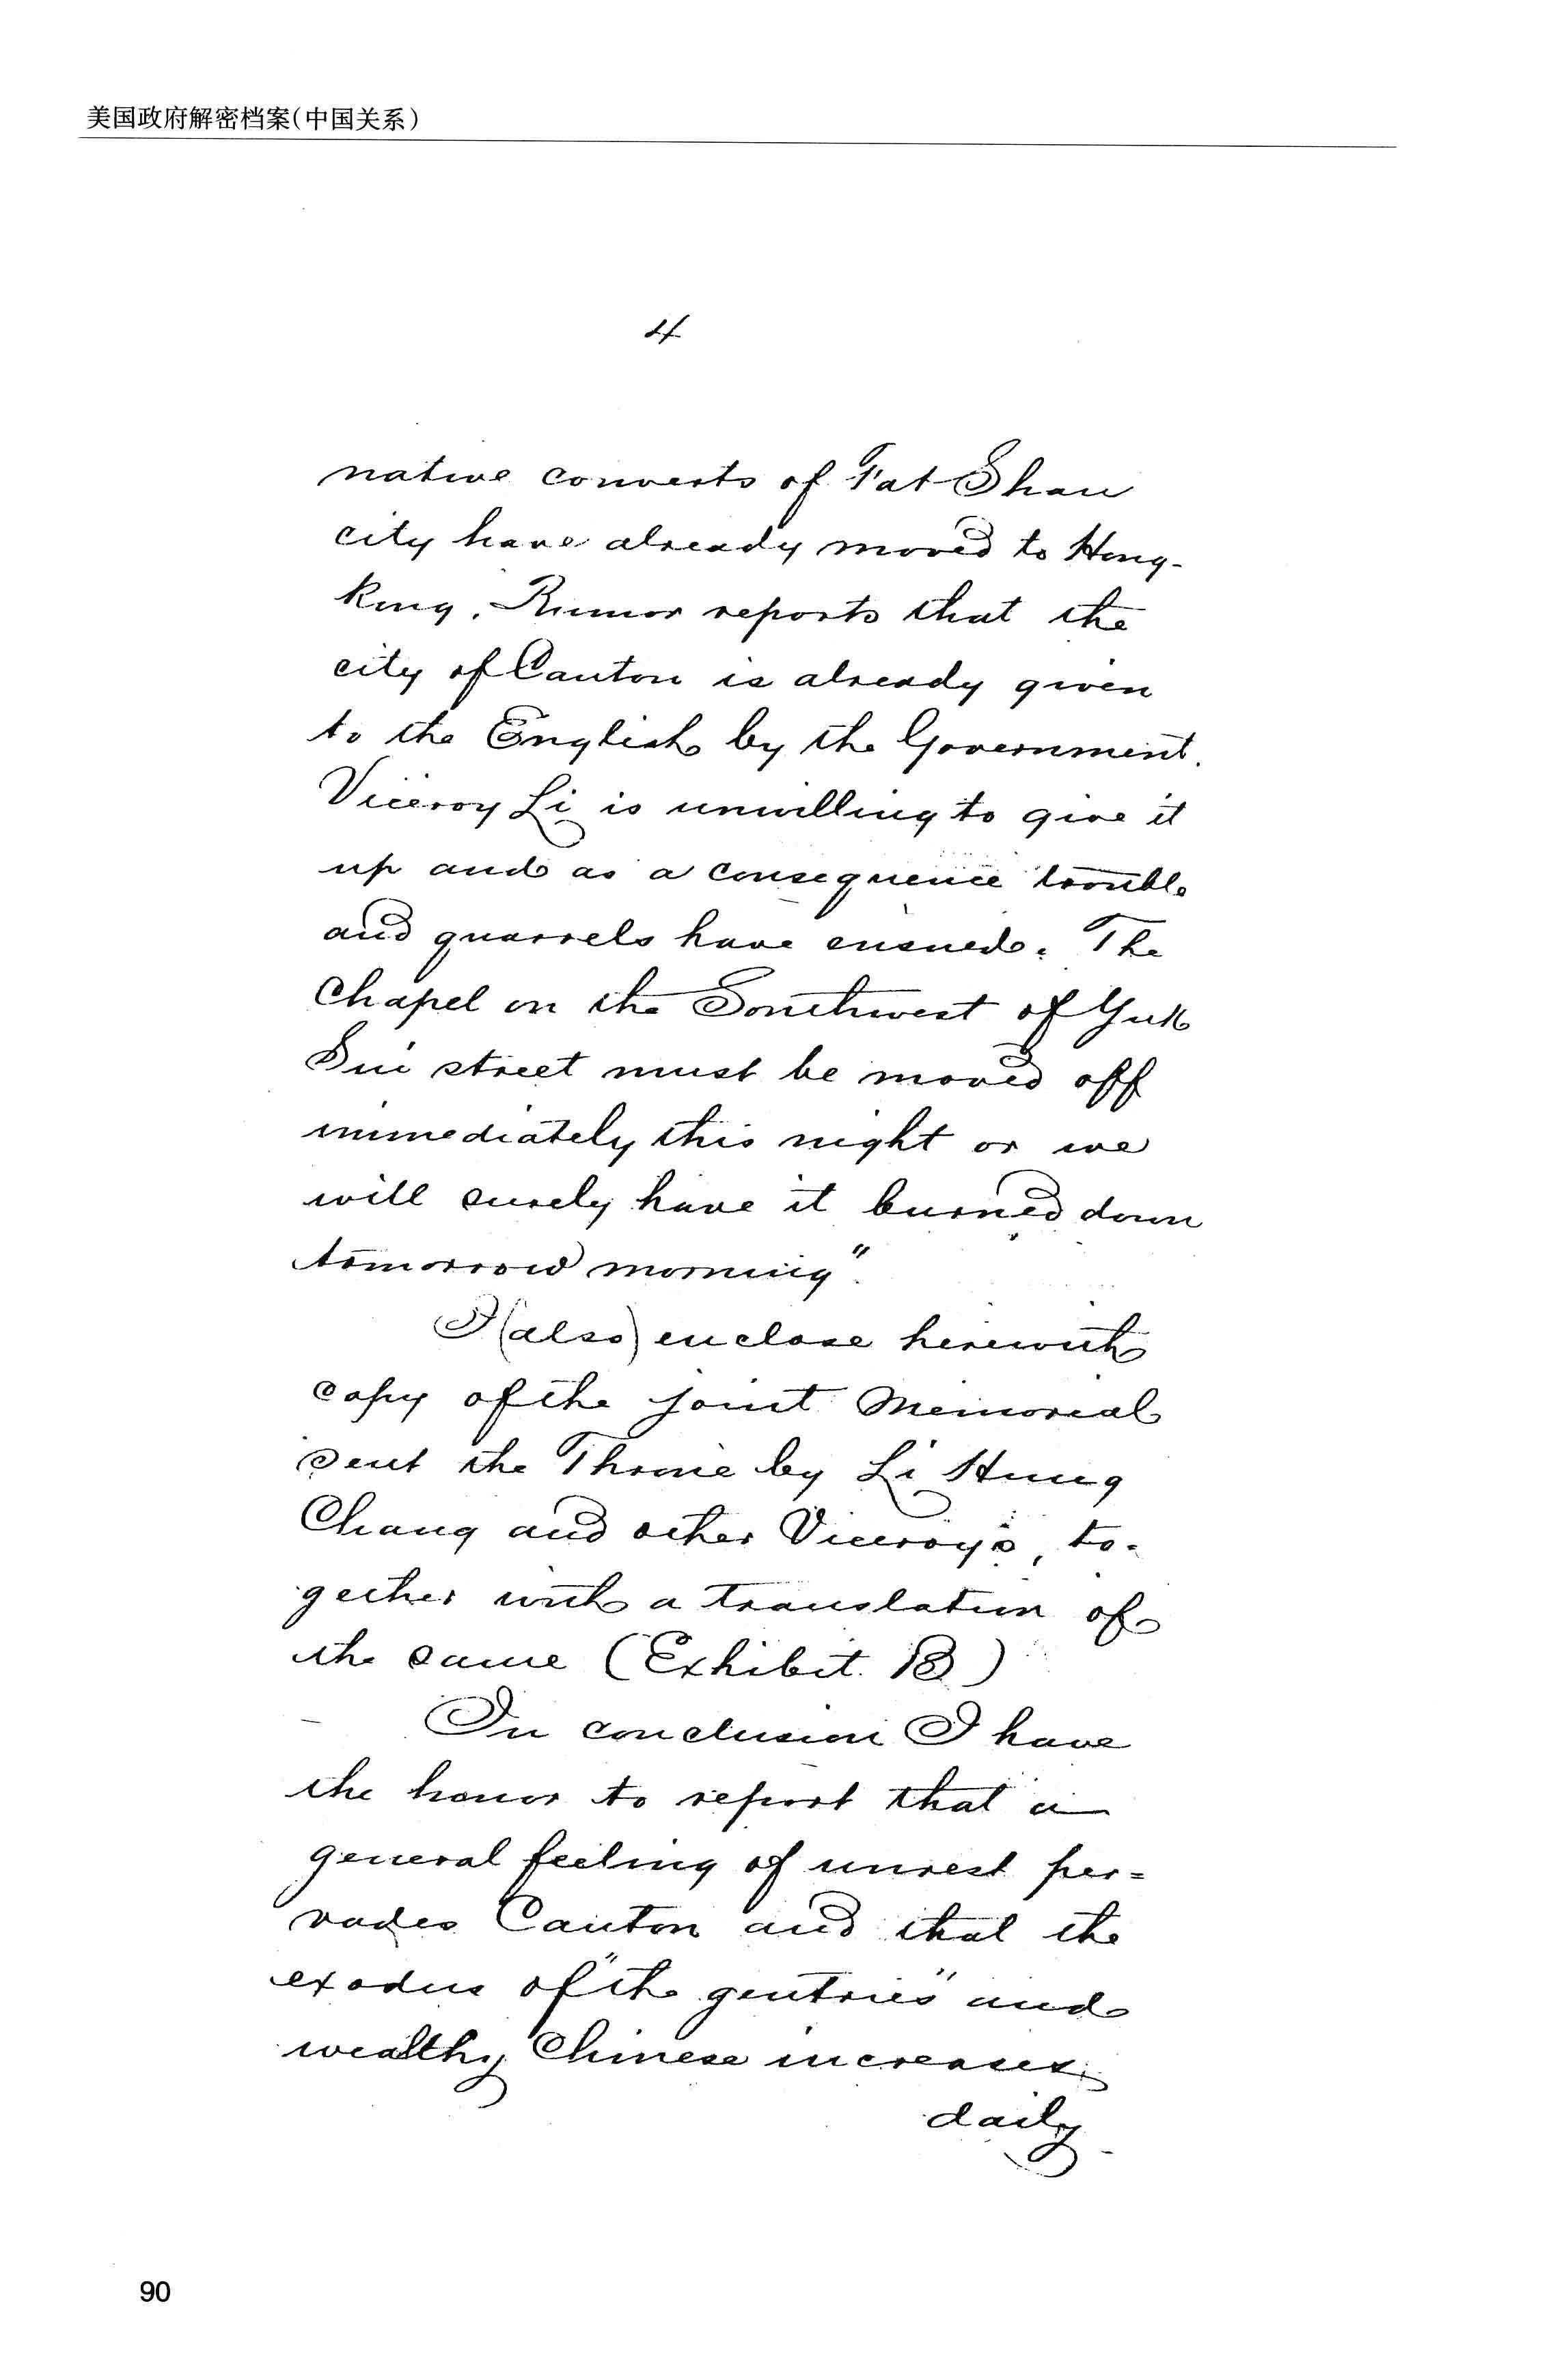 美国政府解密档案(中国关系)
4
native converts of Fat Shan
city have already moved to Hong-
Kong. Rumor reports that the
city of Canton is already given
to the English by the Government.
Viceroy Li is unwilling to give it
up and as a consequence trouble
and quarrels have ensued. The
Chapel on the Southwest of Yuk
Sui street must be moved off
immediately this night or we
will surely have it burned down
tomorrow morning".
I (also) enclose herewith
copy of the joint Memorial
sent the Throne by Li Hung
Chang and other Viceroy's, to-
gether with a translation of
the same (Exhibit B)
In conclusion I have
the honor to report that a
general feeling of unrest per=
vades Canton and that the
exodus of "the gentries" and
wealthy Chinese increases
daily
90